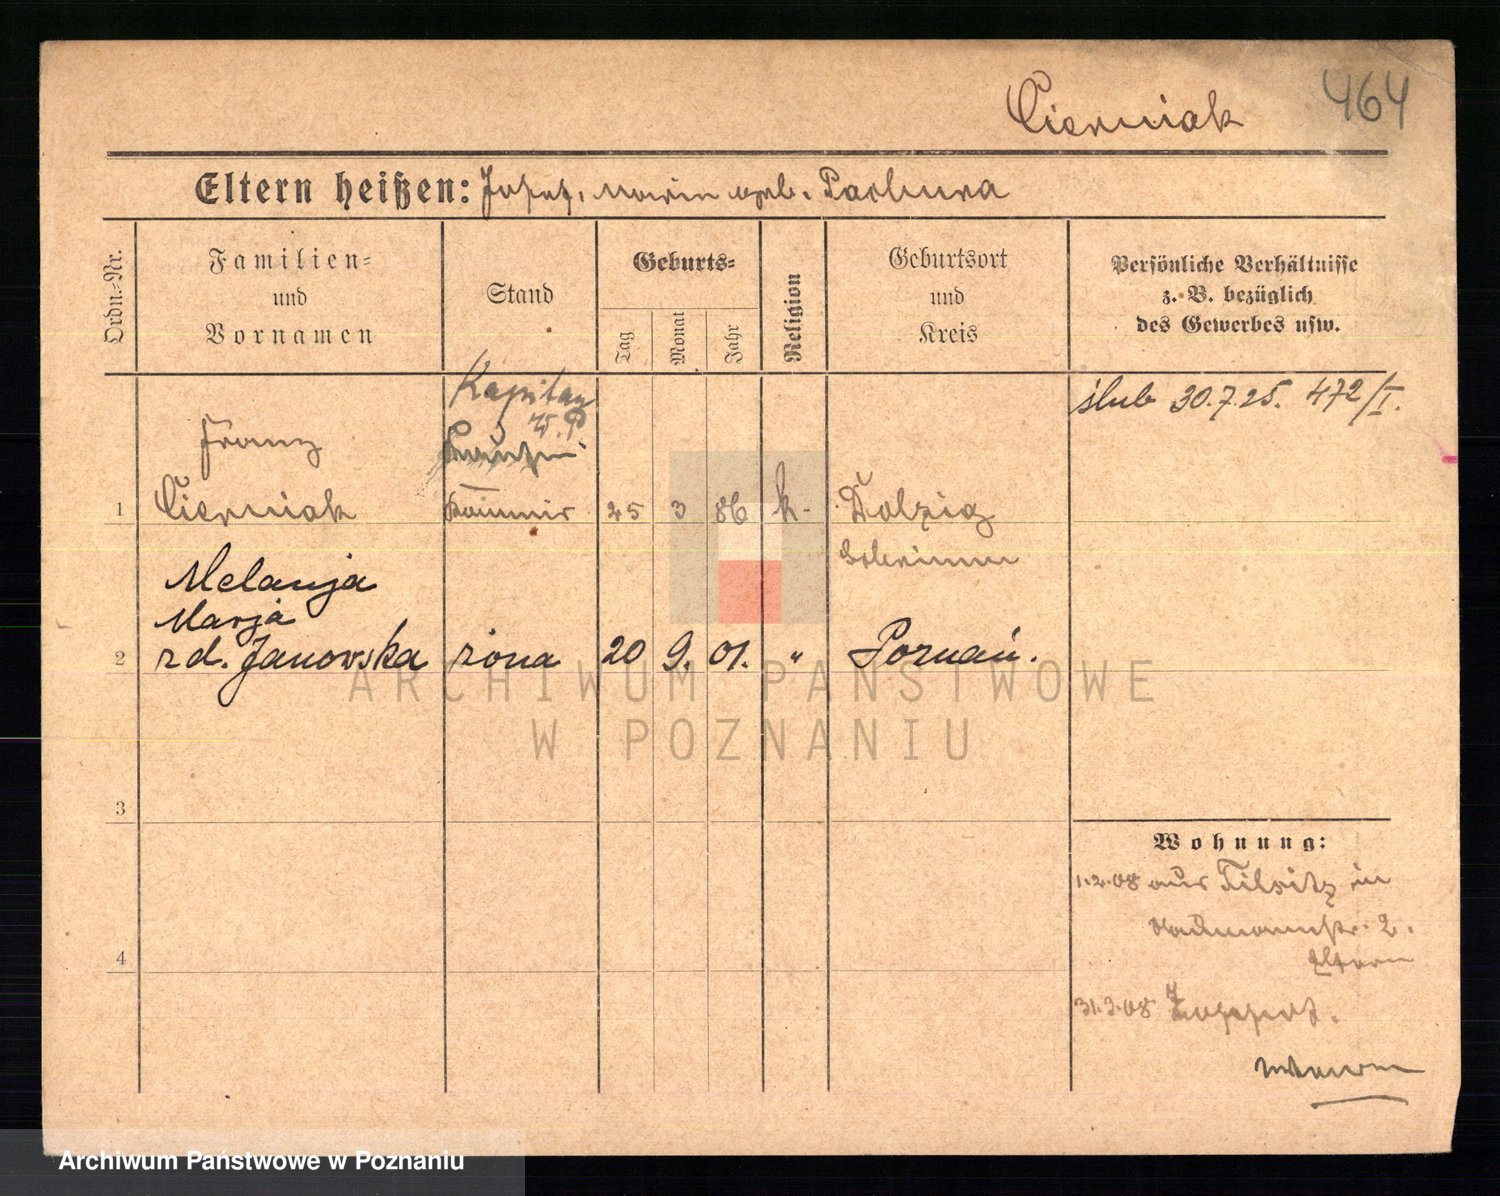 Cierniak
464
Eltern heißen: Josef, Marie geb. Pachura
Ordn.-Nr.
Familien-
und
Vornamen
Stand
Geburts-
Tag
Monat
Jahr
Religion
Geburtsort
und
Kreis
Persönliche Verhältnisse
z. B. bezüglich
des Gewerbes usw.
Kapitan
W. P.
ślub 30.7.25. 472/I.
Franz
1 Cierniak 25 3 86 k. Dolzig
Schrimm
Melanja
Marja
2 zd. Janowska żona 20 9. 01. " Poznań.
3
4
Wohnung:
1.2.08 aus Tilsit in
Naumannstr. 2.
Eltern
31.3.08 Zoppot.
ARCHIWUM PAŃSTWOWE
W POZNANIU
Archiwum Państwowe w Poznaniu